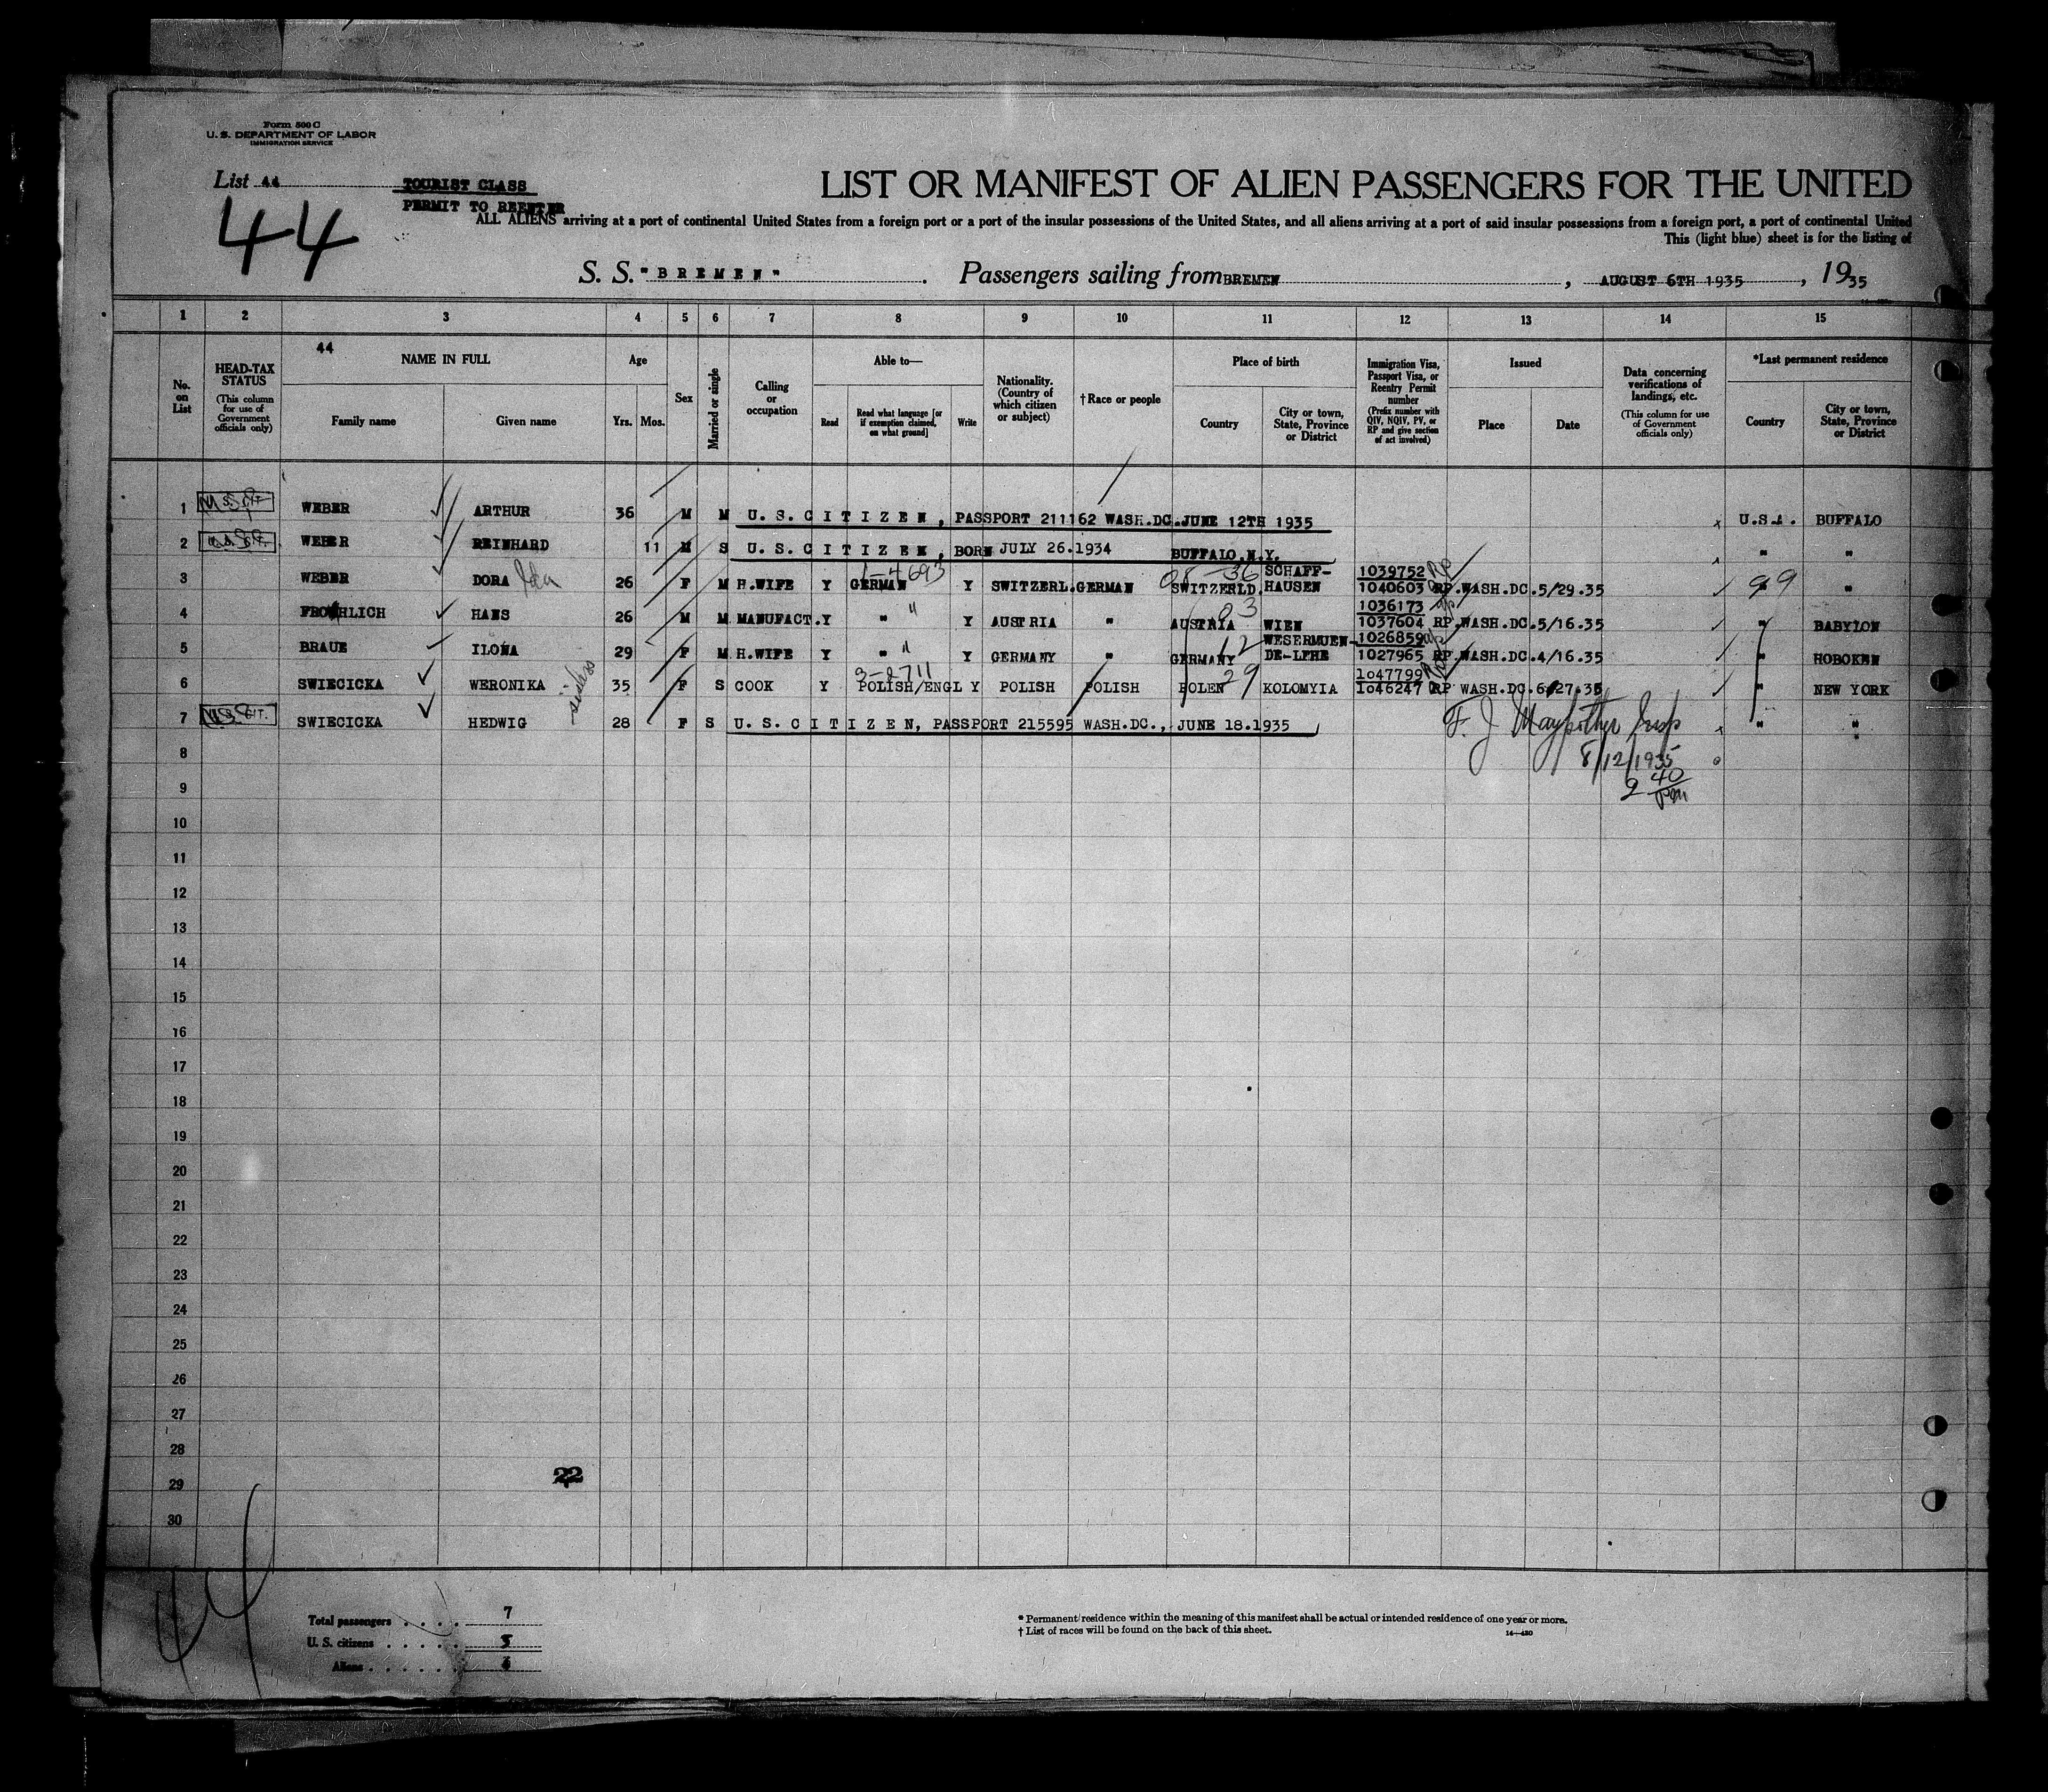 Form 500 C
U. S. DEPARTMENT OF LABOR
IMMIGRATION SERVICE
List 44
TOURIST CLASS
PERMIT TO REENTER
44
LIST OR MANIFEST OF ALIEN PASSENGERS FOR THE UNITED
ALL ALIENS arriving at a port of continental United States from a foreign port or a port of the insular possessions of the United States, and all aliens arriving at a port of said insular possessions from a foreign port, a port of continental United
This (light blue) sheet is for the listing of
S. S. "BREMEN" . Passengers sailing from BREMEN , AUGUST 6TH 1935 , 1935
1 2 3 4 5 6 7 8 9 10 11 12 13 14 15
No. on List
HEAD-TAX STATUS (This column for use of Government officials only)
44
NAME IN FULL
Family name Given name
Age
Yrs. Mos.
Sex
Married or single
Calling or occupation
Able to—
Read Read what language [or if exemption claimed, on what ground] Write
Nationality. (Country of which citizen or subject)
†Race or people
Place of birth
Country City or town, State, Province or District
Immigration Visa, Passport Visa, or Reentry Permit number (Prefix number with QIV, NQIV, PV, or RP and give section of act involved)
Issued
Place Date
Data concerning verifications of landings, etc. (This column for use of Government officials only)
*Last permanent residence
Country City or town, State, Province or District
1 WEBER ARTHUR 36 M M U.S.CITIZEN, PASSPORT 211162 WASH.DC.JUNE 12TH 1935 U.S.A. BUFFALO
2 WEBER REINHARD 11 M S U.S.CITIZEN, BORN JULY 26.1934 BUFFALO.N.Y. " "
1-4693 08-36
3 WEBER DORA Ida 26 F M H.WIFE Y GERMAN Y SWITZERL. GERMAN SWITZERLD. SCHAFF-HAUSEN 1039752 1040603 RP.WASH.DC.5/29.35 " 99 "
4 FROHLICH HANS 26 M M MANUFACT. Y " " Y AUSTRIA " AUSTRIA 83 WIEN 1036173 1037604 RP.WASH.DC.5/16.35 " BABYLON
5 BRAUE ILONA 29 F M H.WIFE Y " " Y GERMANY " GERMANY 12 WESERMUEN-DE-LEHE 1026859 1027965 RP.WASH.DC.4/16.35 " HOBOKEN
3-2711
6 SWIECICKA WERONIKA 35 F S COOK Y POLISH/ENGL Y POLISH POLISH POLEN 29 KOLOMYIA 1047799 1046247 RP WASH.DC.6/27.35 " NEW YORK
sisters
7 U.S. CIT. SWIECICKA HEDWIG 28 F S U.S.CITIZEN, PASSPORT 215595 WASH.DC., JUNE 18.1935 " "
F. J. Maypother Insp
8 8/12/1935
9 2 40 pm
10
11
12
13
14
15
16
17
18
19
20
21
22
23
24
25
26
27
28
22
29
30
44
Total passengers . . . . 7
U. S. citizens . . . . .
Aliens . . . . . .
* Permanent residence within the meaning of this manifest shall be actual or intended residence of one year or more.
† List of races will be found on the back of this sheet.
14—430